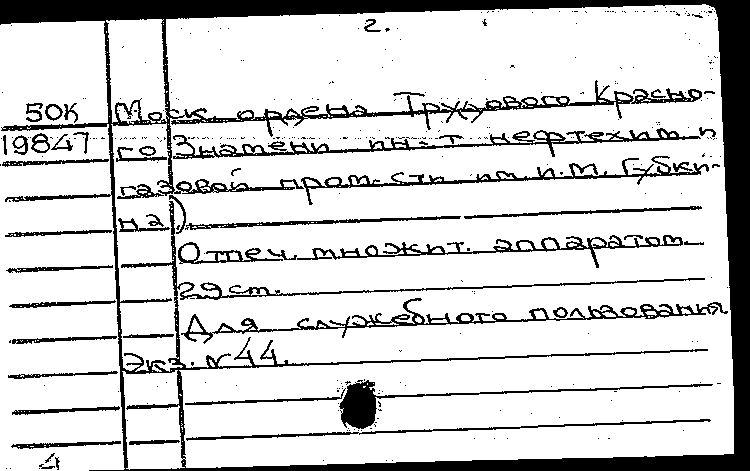 2.
50К Моск. ордена Трудового Красно-
19847 го Знамени ин-т нефтехим и
газовой пром-сти им. И.М. Губки-
на)
Отпеч. множит. аппаратом.
29 ст.
Для служебного пользования
Экз. N 44.
4